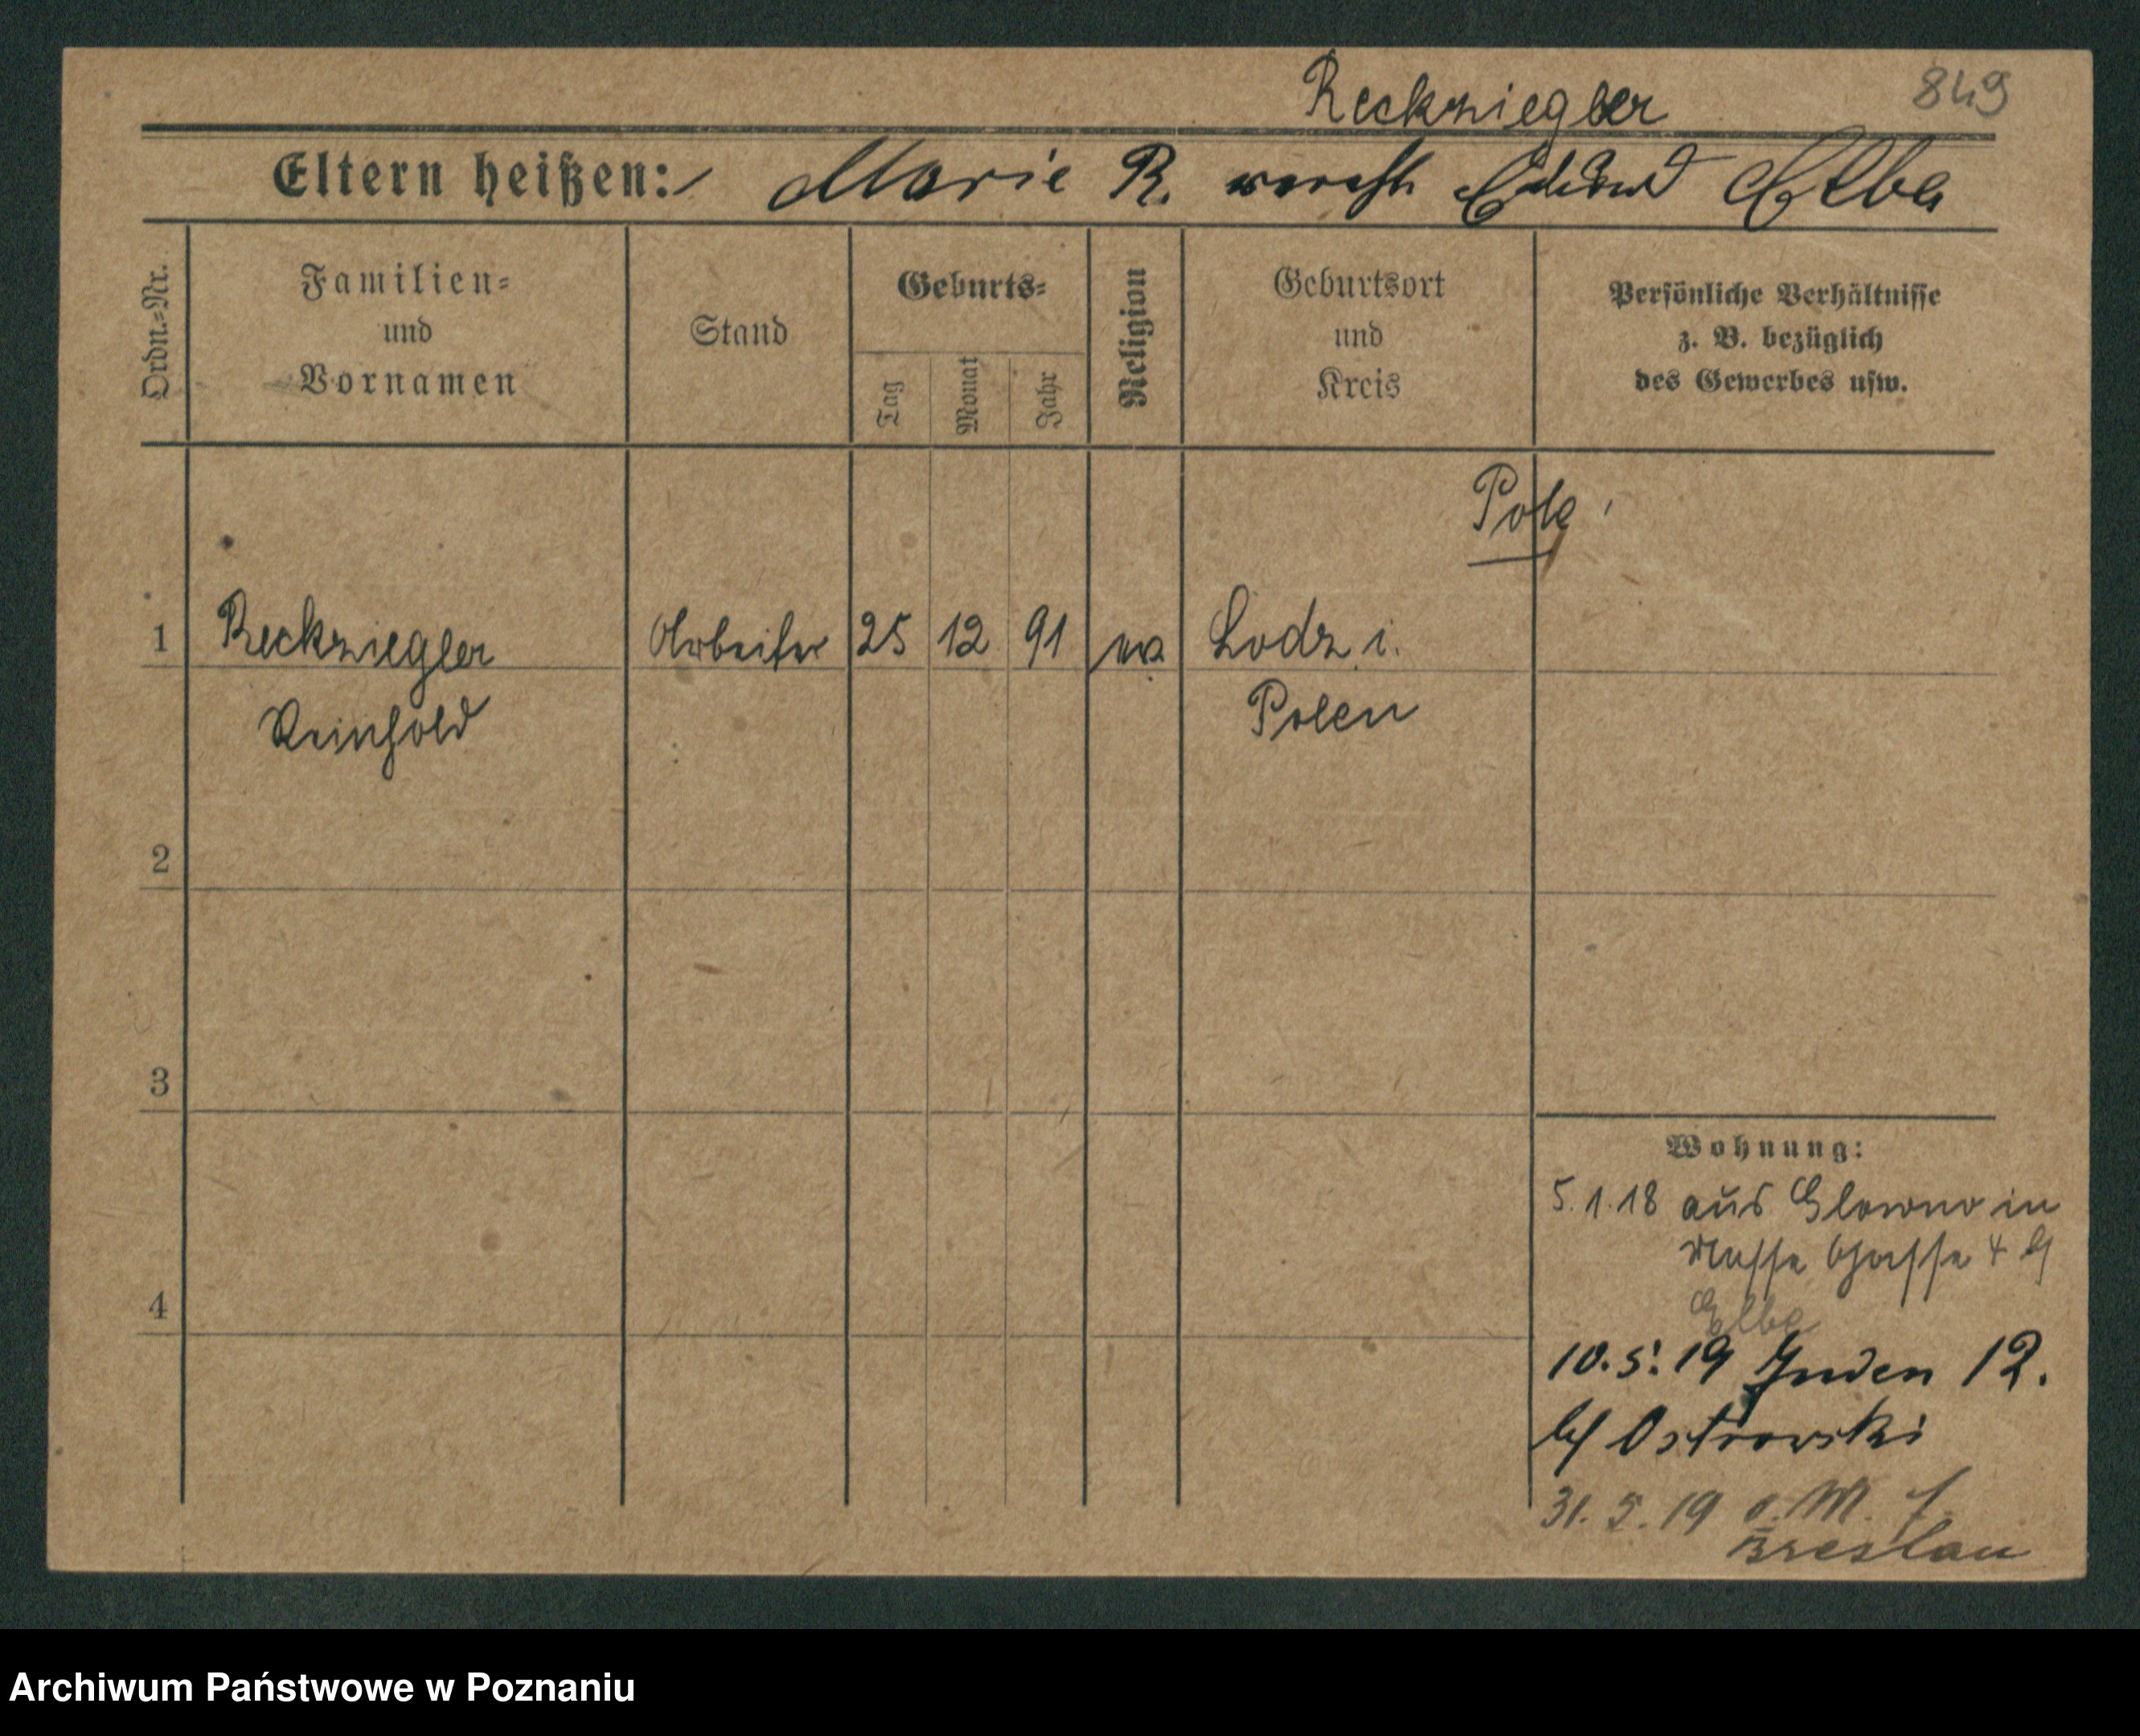 Reckziegler 849
Eltern heißen: Marie R. verehl. Eduard Elbe
Ordn.=Nr.
Familien=
und
Vornamen
Stand
Geburts=
Tag
Monat
Jahr
Religion
Geburtsort
und
Kreis
Persönliche Verhältnisse
z. B. bezüglich
des Gewerbes usw.
Pole
1 Reckziegler Arbeiter 25 12 91 ev Lodz i.
Reinhold Polen
2
3
4
Wohnung:
5.1.18 aus Glowno in
Nasse Gasse 4 b/
Elbe
10.5.19 Juden 12.
b/ Ostrowski
31.5.19 o. M. f.
Breslau
Archiwum Państwowe w Poznaniu